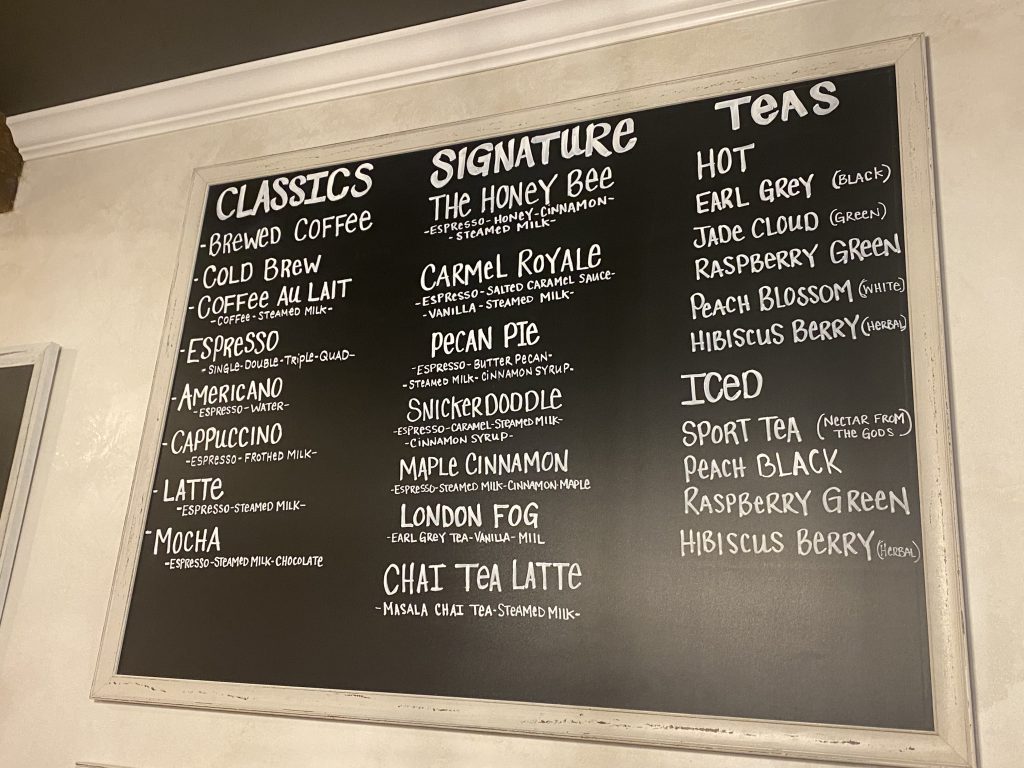 CLASSICS
-BREWED COFFEE
-COLD BREW
-COFFEE AU LAIT
-COFFEE-STEAMED MILK-
-ESPRESSO
-SINGLE-DOUBLE-TRIPLE-QUAD-
-AMERICANO
-ESPRESSO-WATER-
-CAPPUCCINO
-ESPRESSO-FROTHED MILK-
-LATTE
-ESPRESSO-STEAMED MILK-
-MOCHA
-ESPRESSO-STEAMED MILK-CHOCOLATE
SIGNATURE
THE HONEY BEE
-ESPRESSO-HONEY-CINNAMON-
-STEAMED MILK-
CARMEL ROYALE
-ESPRESSO-SALTED CARAMEL SAUCE-
-VANILLA-STEAMED MILK-
PECAN PIE
-ESPRESSO-BUTTER PECAN-
-STEAMED MILK-CINNAMON SYRUP-
SNICKERDOODLE
-ESPRESSO-CARAMEL-STEAMED MILK-
-CINNAMON SYRUP-
MAPLE CINNAMON
-ESPRESSO-STEAMED MILK-CINNAMON-MAPLE
LONDON FOG
-EARL GREY TEA-VANILLA-MIIL
CHAI TEA LATTE
-MASALA CHAI TEA-STEAMED MILK-
TEAS
HOT
EARL GREY (BLACK)
JADE CLOUD (GREEN)
RASPBERRY GREEN
PEACH BLOSSOM (WHITE)
HIBISCUS BERRY (HERBAL)
ICED
SPORT TEA (NECTAR FROM
THE GODS)
PEACH BLACK
RASPBERRY GREEN
HIBISCUS BERRY (HERBAL)